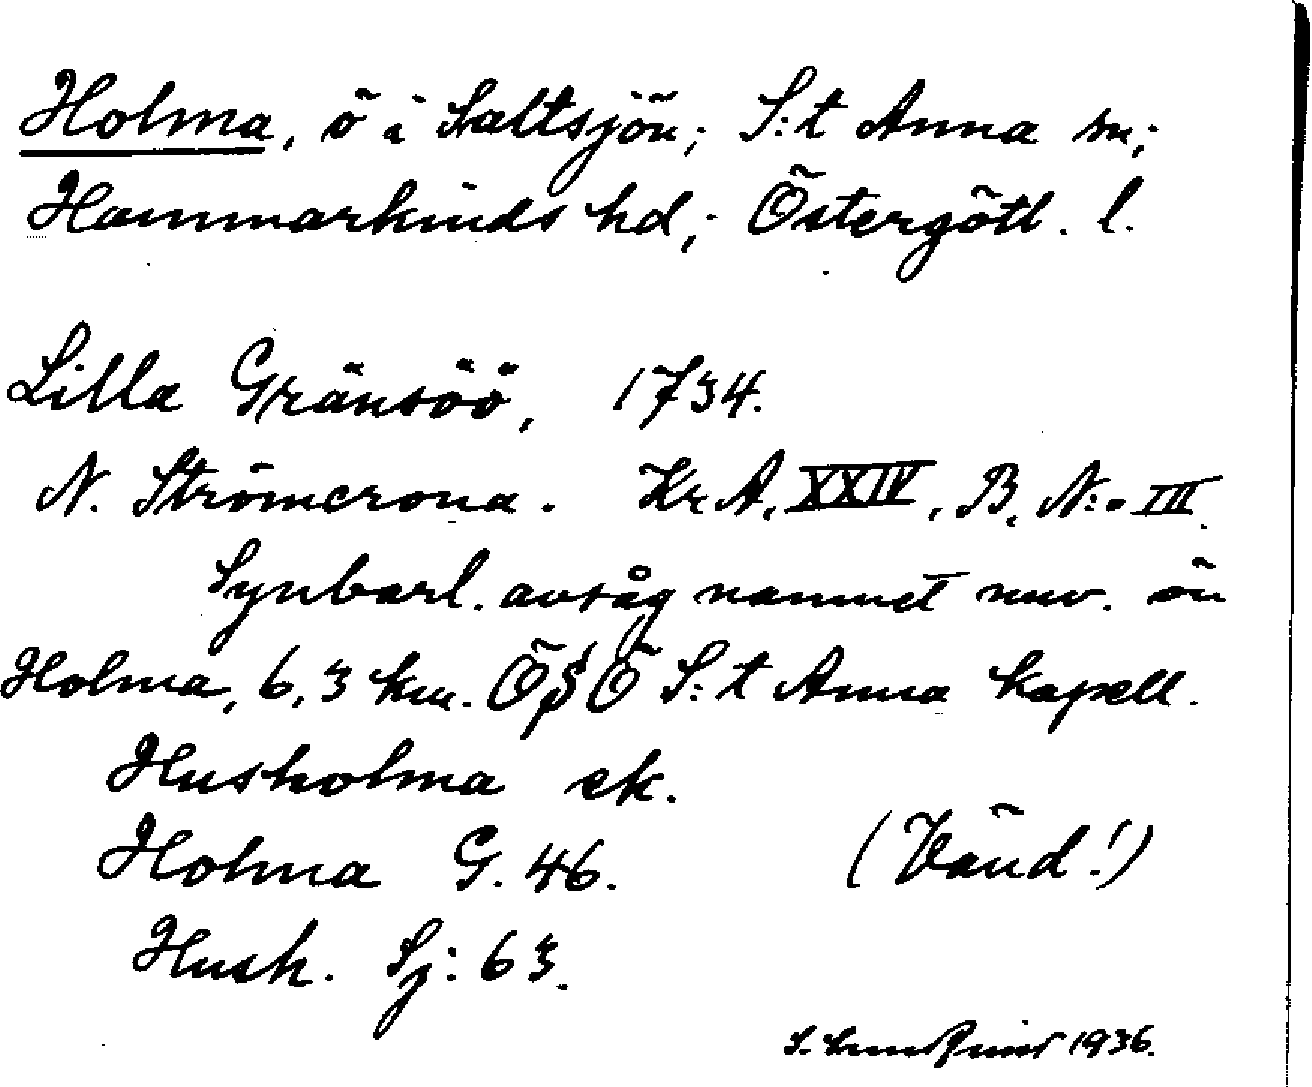 Holma, ö i Saltsjön; S:t Anna sn;
Hammarkinds hd; Östergötl. l.
Lilla Gränsöö, 1734.
N. Strömcrona. Kr A. XXIV, B. N:o III.
Synbarl. avsåg namnet nuv. ön
Holma, 6,3 km. ÖSÖ S:t Anna kapell.
Husholma ek.
Holma G. 46.
(Vänd!)
Hush. Sj: 63.
S. 1936.